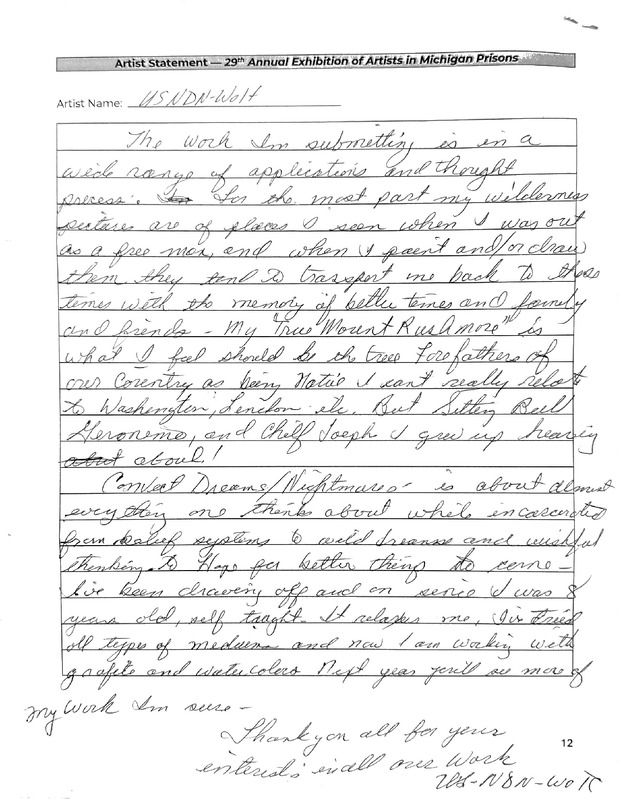 Artist Statement — 29th Annual Exhibition of Artists in Michigan Prisons
Artist Name: USNDN-Wolf
The work Im submetting is in a
wide range of applications and thought
precess. For the most part my wilderness
pictures are of places I seen when I was out
as a free man, and when I paint and/or draw
them they tend to transport me back to those
times with the memory of better times and family
and friends - My "True Mount Rushmore" is
what I feel should be the true Forefathers of
our Country as being Native I can't really relate
to Washington, Lincoln etc. But Sitting Bull
Geronimo, and Chief Joseph I grew up hearing
about!
Convict Dreams/Nightmares - is about almost
everything one thinks about while incarcerated
from belief systems to wild dreams and wishful
thinking to Hope for better things to come -
I've been drawing off and on sence I was 8
years old, self taught. It relaxes me, I've tried
all types of mediums and now I am working with
grafite and watercolors Next year you'll see more of
my work Im sure -
Thank you all for your
interest's in all our Work
US-NDN-Wolf
12